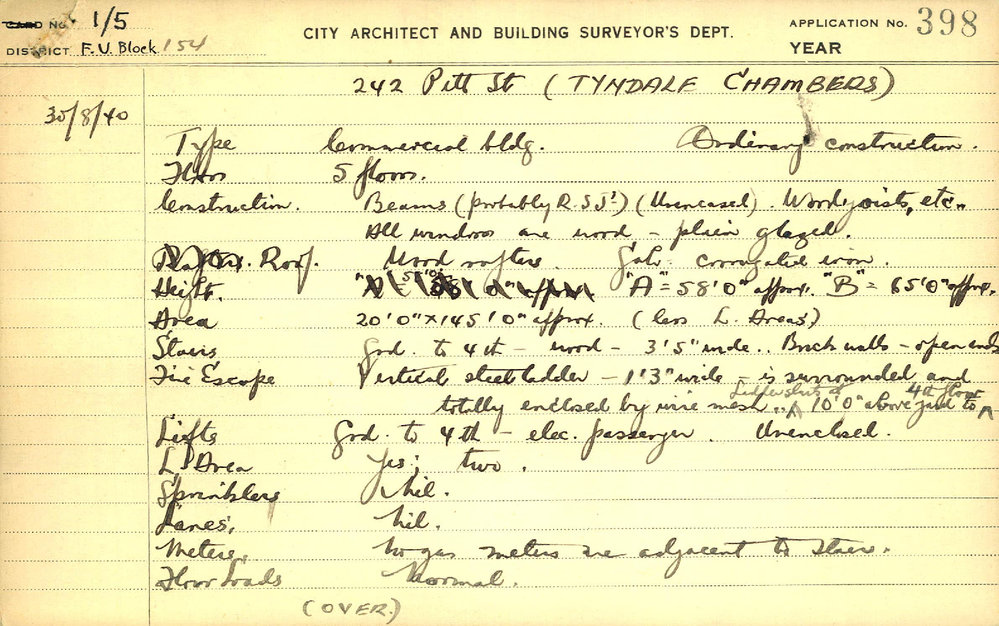 CARD No. 1/5
DISTRICT F.U. Block 154
CITY ARCHITECT AND BUILDING SURVEYOR'S DEPT.
APPLICATION No. 398
YEAR
242 Pitt St (TYNDALE CHAMBERS)
30/8/40
Type Commercial bldg. Ordinary construction.
Floors 5 floors.
Construction. Beams (probably R.S.J's) (Unencased). Wood joists, etc.
All windows are wood - plain glazed.
Roof. Wood rafters Galv. corrugated iron.
Height. "A" = 58'0" approx. "B" = 65'0" approx.
Area 20'0" x 145'0" approx. (less L. Areas)
Stairs Grd. to 4th - wood - 3'5" wide.. Brick walls - open ends
Fire Escape Vertical steel ladder - 1'3" wide - is surrounded and
totally enclosed by wire mesh .. Ladder starts at 10'0" above yard to 4th floor
Lifts Grd. to 4th - elec. passenger. Unenclosed.
L. Area Yes; two.
Sprinklers Nil.
Lanes. Nil.
Meters. No gas meters are adjacent to stairs.
Floor Loads Normal.
(OVER.)